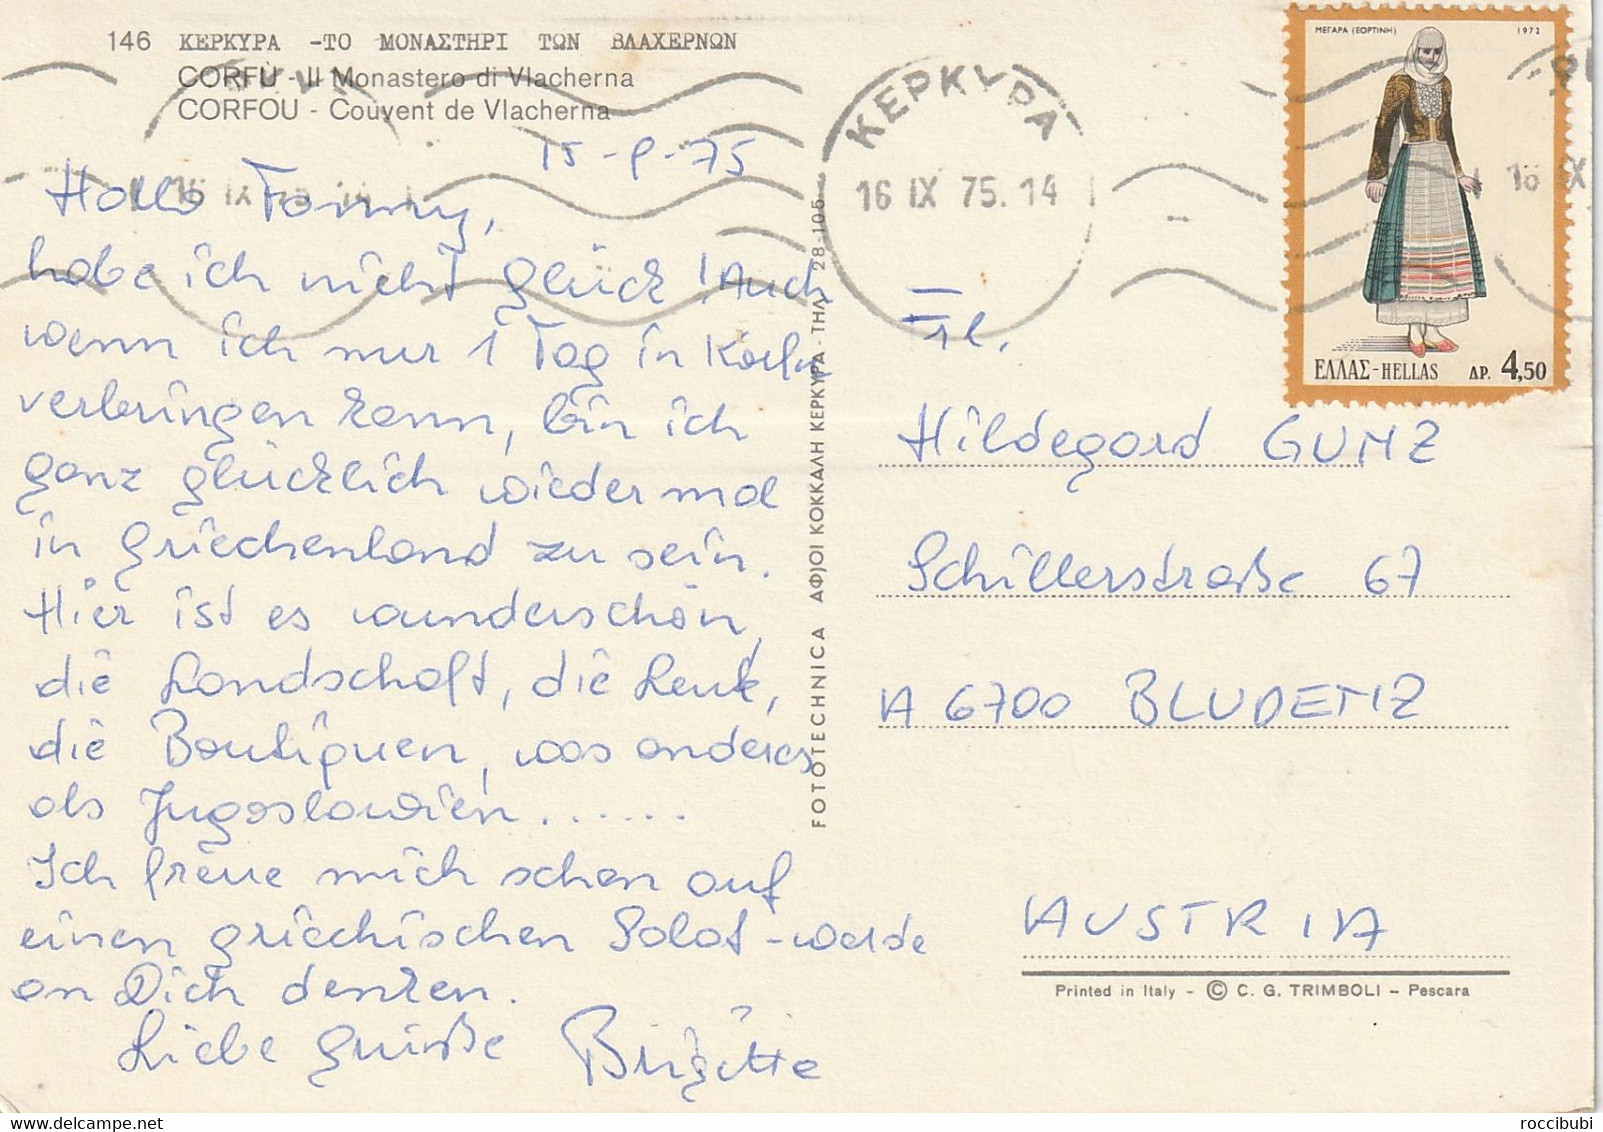 146 ΚΕΡΚΥΡΑ -ΤΟ ΜΟΝΑΣΤΗΡΙ ΤΩΝ ΒΛΑΧΕΡΝΩΝ
CORFÙ - Il Monastero di Vlacherna
CORFOU - Couvent de Vlacherna
15-9-75
Hallo Fanny,
habe ich nicht Glück! Auch
wenn ich nur 1 Tag in Korfu
verbringen kann, bin ich
ganz glücklich wieder mal
in Griechenland zu sein.
Hier ist es wunderschön,
die Landschaft, die Leute,
die Boutiquen, was anderes
als Jugoslawien......
Ich freue mich schon auf
einen griechischen Salat - werde
an Dich denken.
Liebe Grüße Brigitte
FOTOTECHNICA ΑΦΟΙ ΚΟΚΚΑΛΗ ΚΕΡΚΥΡΑ - ΤΗΛ. 28-105
ΚΕΡΚΥΡΑ
16 IX 75. 14
16 IX
ΜΕΓΑΡΑ (ΕΟΡΤΙΝΗ) 1972
ΕΛΛΑΣ-HELLAS ΔΡ. 4,50
Frl.
Hildegard GUNZ
Schillerstraße 67
A 6700 BLUDENZ
AUSTRIA
Printed in Italy - © C. G. TRIMBOLI - Pescara
www.delcampe.net
roccibubi